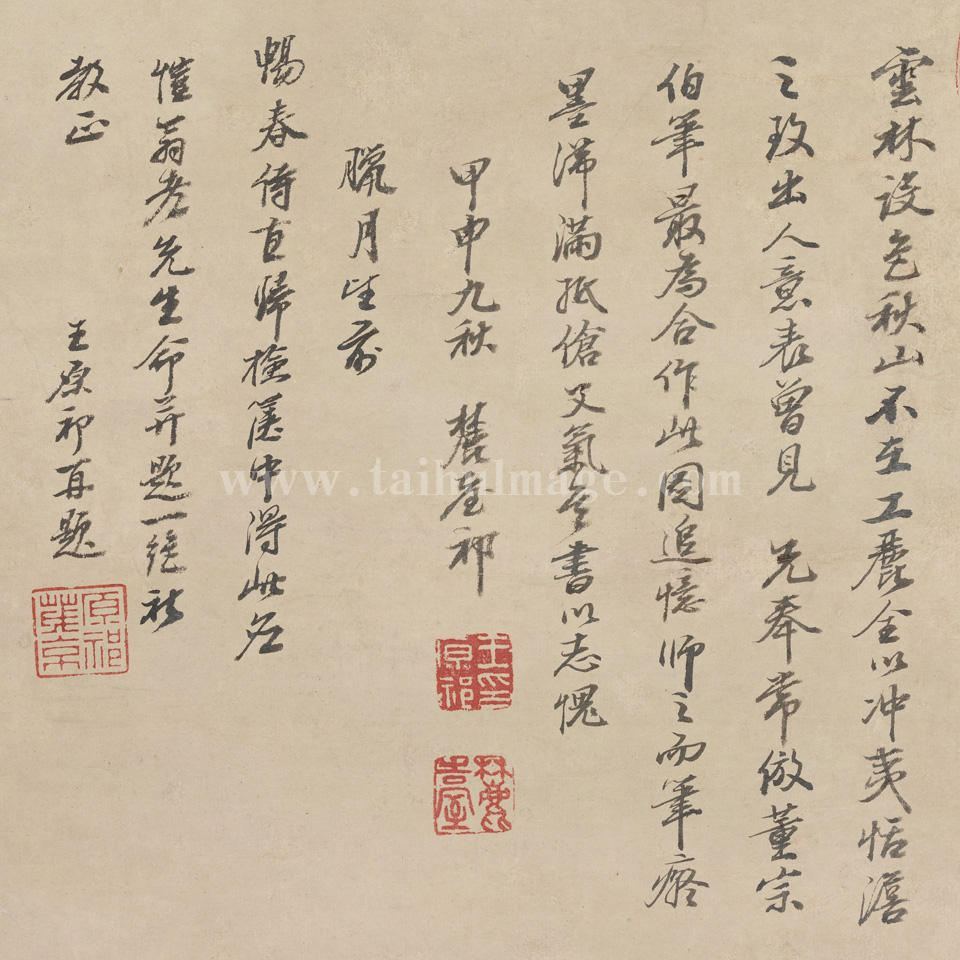 雲林設色秋山不在工麗全以冲夷恬澹
之致出人意表曾見 先奉常倣董宗
伯筆最為合作此圖追憶師之而筆癡
墨滯滿紙傖父氣益書以志愧
甲申九秋 麓臺祁
王原祁印
麓臺
臘月望前
暢春侍直歸檢篋中得此應
愷翁老先生命并題一絕祈
教正
王原祁再題
原祁
茂京
www.taihuImage.com